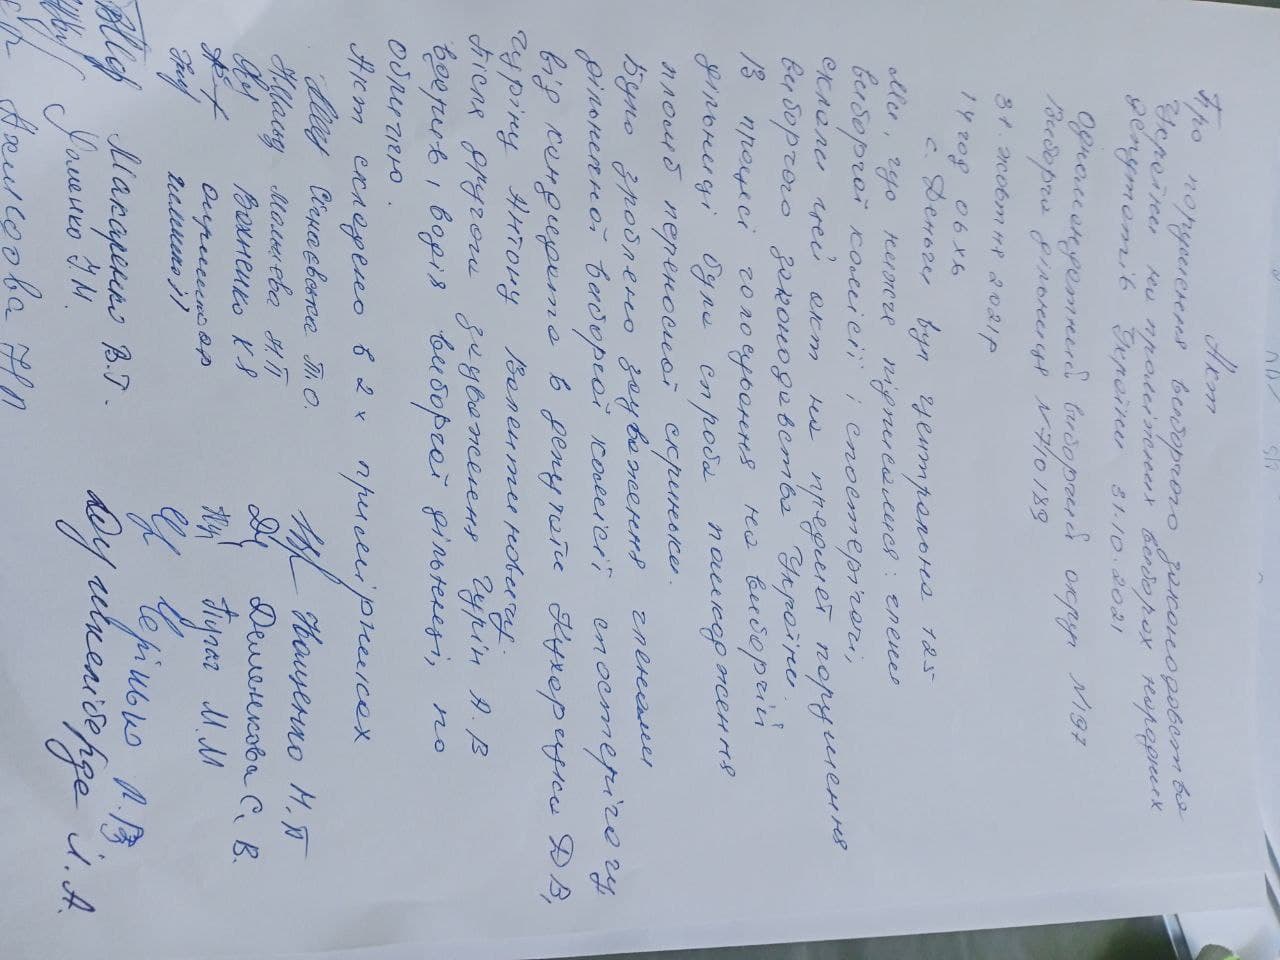 Акт
Про порушення виборчого законодавства
України на проміжних виборах народних
депутатів України 31.10.2021
Одномандатний виборчий округ №197
Виборча дільниця №710189
31 жовтня 2021р
14 год 04 хв
с. Деньги вул Центральна 125
Ми, що нижче підписалися: члени
виборчої комісії і спостерігачі,
склали цей акт на предмет порушення
виборчого законодавства України.
В процесі голосування на виборчій
дільниці була спроба пошкодження
пломб переносної скриньки.
Було зроблено зауваження членами
дільничної виборчої комісії спостерігачу
від кандидата в депутати Кухарчука Д В,
Гуріну Антону Валентиновичу.
Після другого зауваження Гурін А. В
вдарив, водія виборчої дільниці, по
обличчю.
Акт складено в 2 х примірниках
Т.О.
Іваценко Н. П
Малцева НП
Вахненко К Я
С. В.
Пуга М. М
Макаренко В. Г.
Л. В
У. М.
І. А.